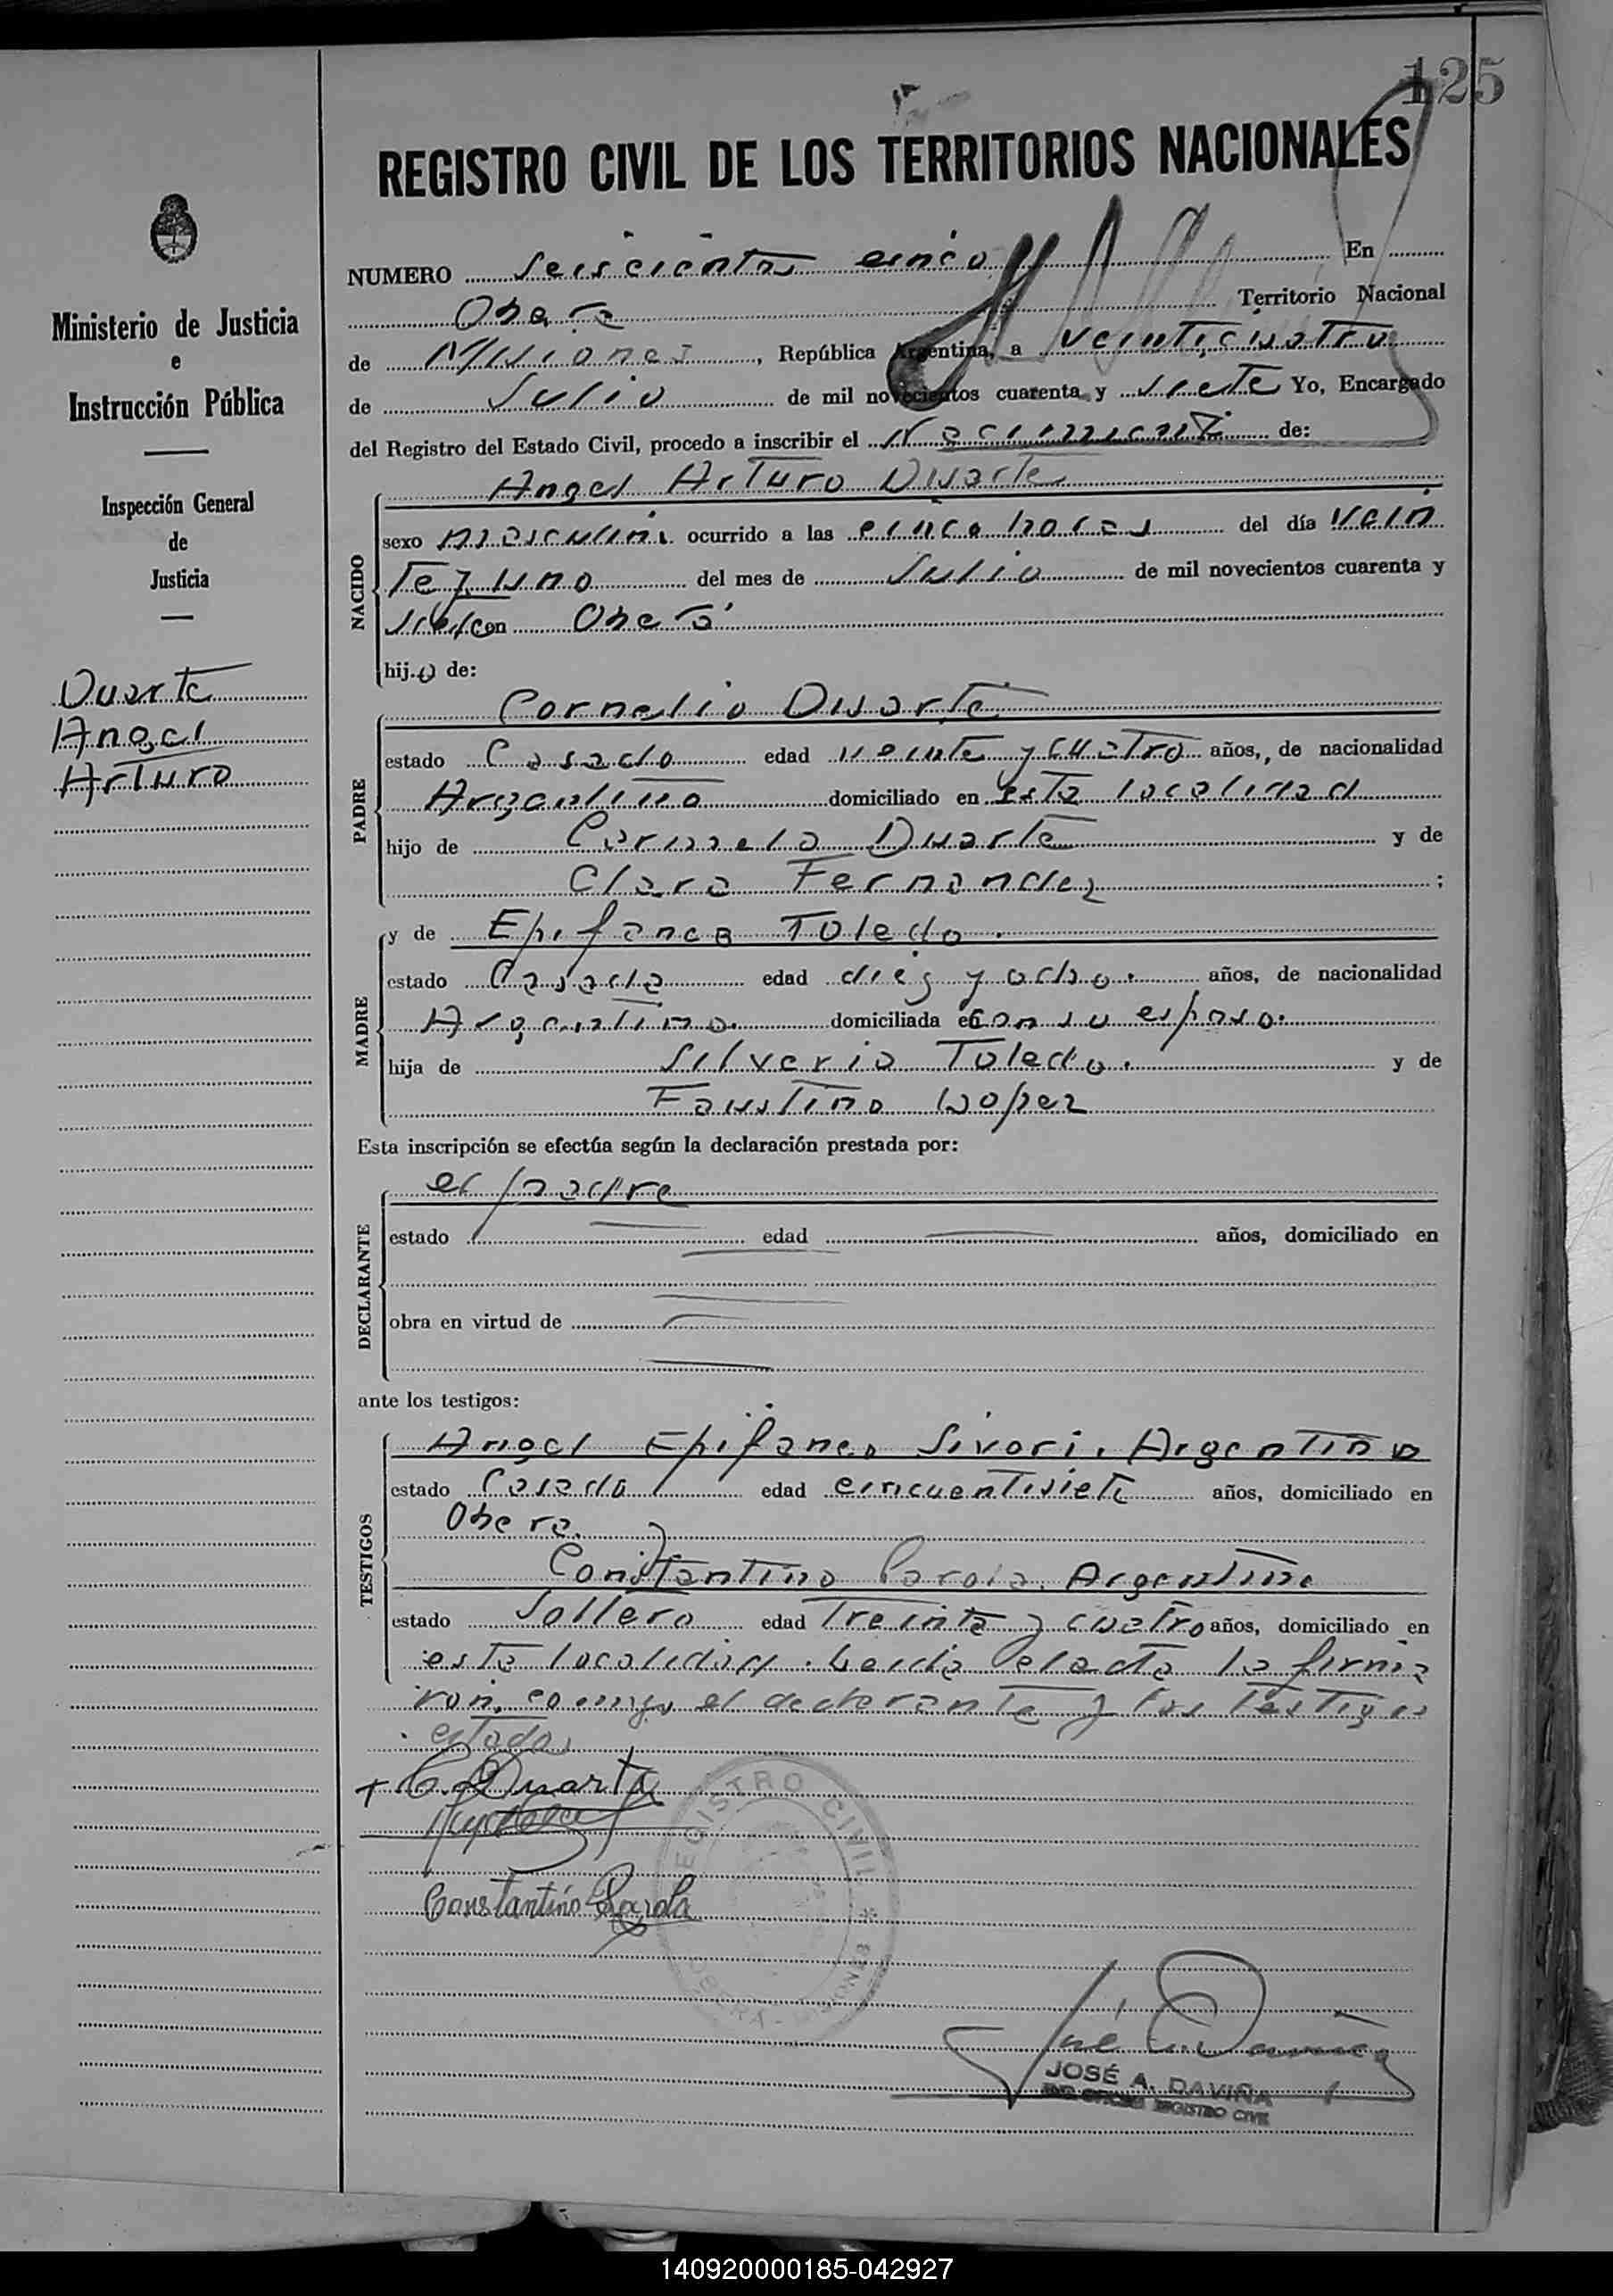 125
REGISTRO CIVIL DE LOS TERRITORIOS NACIONALES
Ministerio de Justicia
e
Instrucción Pública
Inspección General
de
Justicia
Duarte
Angel
Arturo
NUMERO Seiscientos cinco En
Obera Territorio Nacional
de Misiones, República Argentina, a veinticuatro
de Julio de mil novecientos cuarenta y siete Yo, Encargado
del Registro del Estado Civil, procedo a inscribir el Nacimiento de:
NACIDO
Angel Arturo Duarte
sexo masculino ocurrido a las cinco horas del día vein
te y uno del mes de Julio de mil novecientos cuarenta y
siete en Oberá
hijo de:
PADRE
Cornelio Duarte
estado Casado edad veinte y cuatro años, de nacionalidad
Argentino domiciliado en esta localidad
hijo de Duarte y de
Clara Fernandez ;
MADRE
y de Epifanea Toledo.
estado Casada edad diez y ocho. años, de nacionalidad
Argentina. domiciliada en con su esposo.
hija de Silverio Toledo. y de
Faustina Lopez
Esta inscripción se efectúa según la declaración prestada por:
DECLARANTE
el padre
estado edad años, domiciliado en
obra en virtud de
ante los testigos:
TESTIGOS
Angel Epifaneo Sivori, Argentino
estado Casado edad cincuentisiete años, domiciliado en
Obera.
Constantino Parola, Argentino
estado Soltero edad treinta y cuatro años, domiciliado en
esta localidad. Leida el acta la firma
ron, conmigo el declarante y los testigos
citados
C. Duarte
Constantino Parola
REGISTRO CIVIL
OBERA - MISIONES
JOSÉ A. DAVIÑA
REGISTRO CIVIL
140920000185-042927